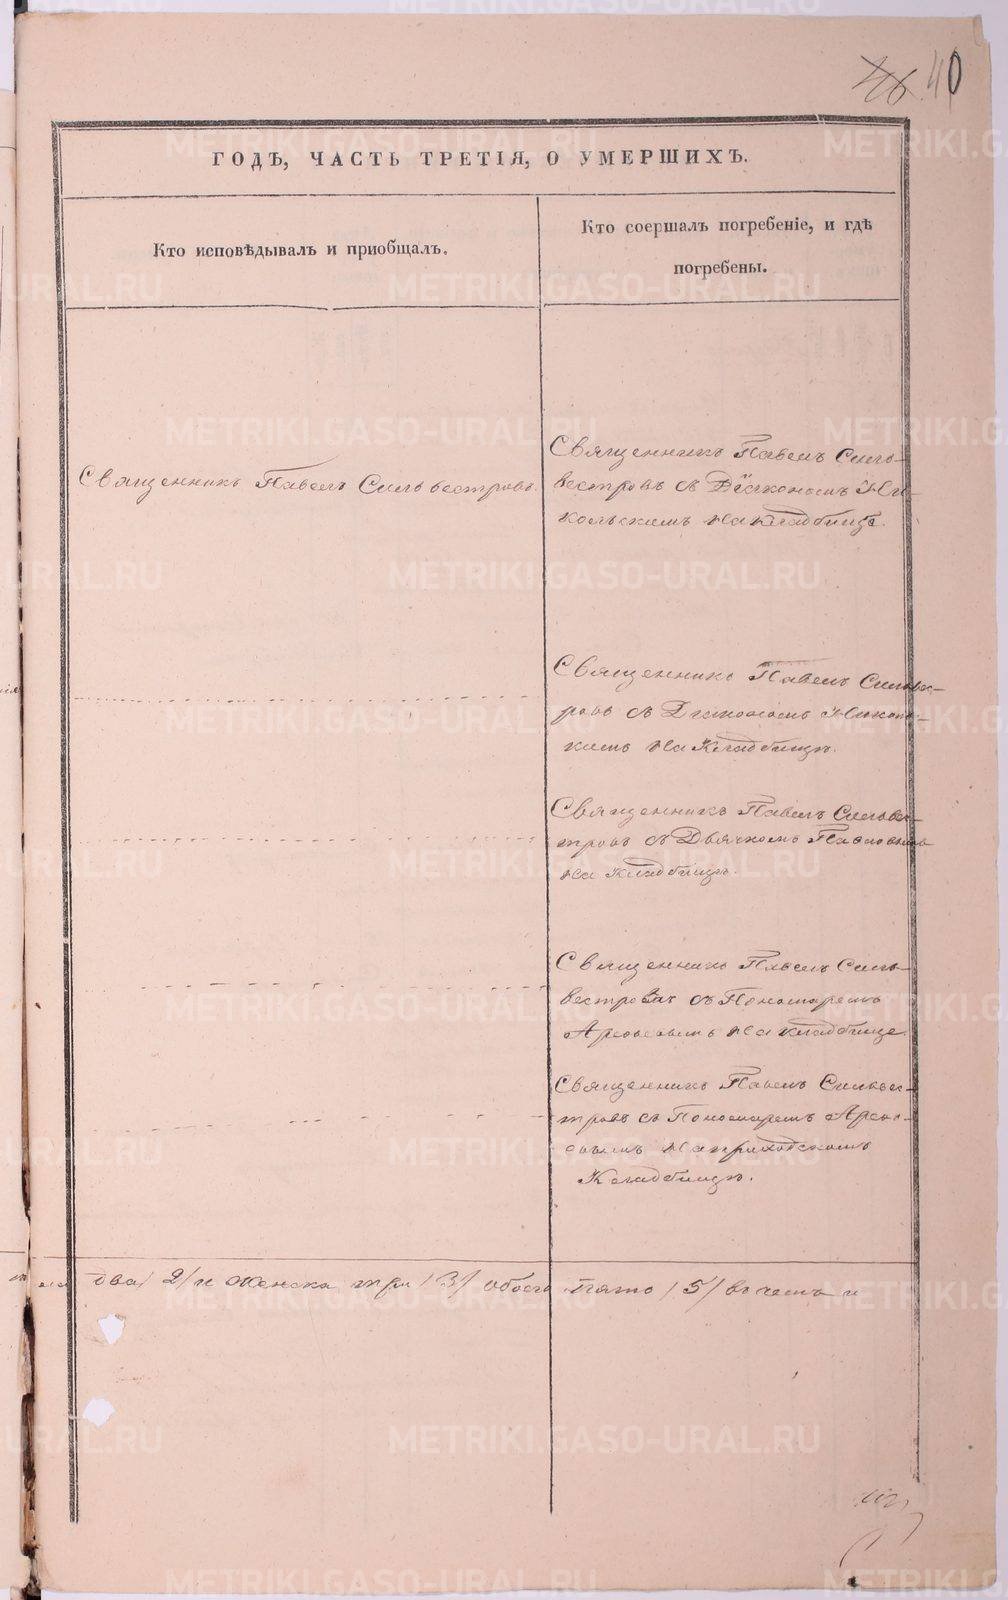 46 40
ГОДѢ, ЧАСТЬ ТРЕТІЯ, О УМЕРШИХЪ.
Кто исповѣдывалъ и пріобщалъ.
Кто соершалъ погребеніе, и гдѣ
погребены.
Священникъ Павелъ Сильвестровъ.
Священникъ Павелъ Силь-
вестровъ съ Діакономъ Ни-
кольскимъ на Кладбище.
Священникъ Павелъ Сильвес-
ровъ съ Діакономъ Николь-
кимъ на Кладбищѣ.
Священникъ Павелъ Сильвес-
тровъ съ Дьячкомъ
на Кладбищѣ.
Священникъ Павелъ Силь-
вестровъ съ Пономаремъ
на кладбище.
Священникъ Павелъ Сильвес-
тровъ съ Пономаремъ
на приходскомъ
Кладбищѣ.
два /2/ и женска три /3/ обоего пять /5/ въ чемъ и
METRIKI.GASO-URAL.RU